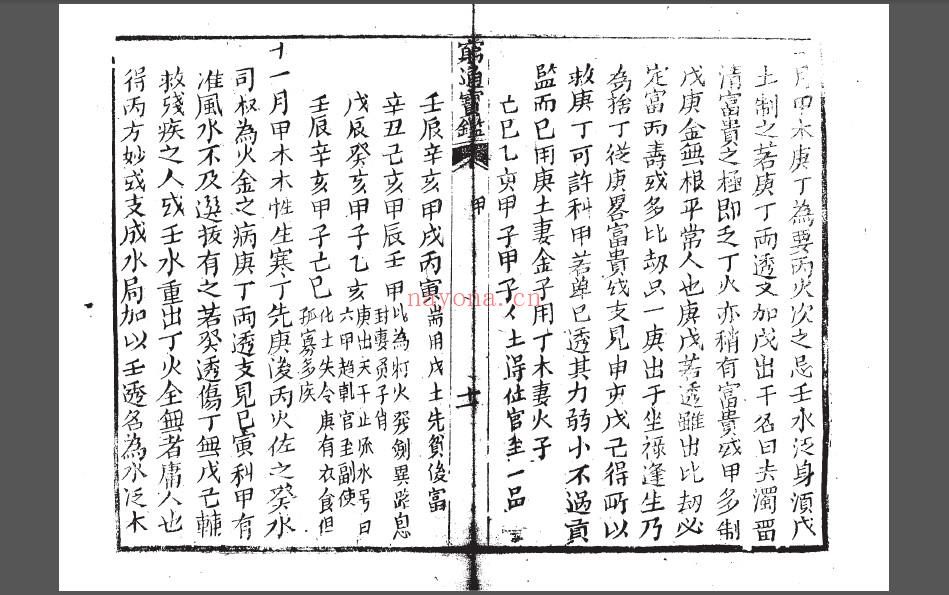 月甲木庚丁為要丙火次之忌壬水泛身須戊
土制之若庚丁兩透支加戊出干名曰去濁留
清富貴之極即乏丁火亦稍有富貴或甲多制
戊庚金無根平常人也庚戊若透雖出比劫必
定富而壽或多比劫只一庚出干坐祿逢生乃
為捨丁從庚畧富貴或支見申亥戊己得所以
救庚丁可許科甲若单己透其力弱小不過貢
監而已用庚土妻金子用丁木妻火子
亡巳乙亥甲子甲子 土得位官至一品
窮通寶鑑
甲
十一
壬辰辛亥甲戌丙寅 耑用戊土先貧後富
辛丑己亥甲辰壬甲 此為灯火發劍異路息
封妻負子肖
戊辰癸亥甲子乙亥 庚出天干止派水号曰
六甲趋乹官至副使
壬辰辛亥甲子亡巳 化土失令庚有衣食但
孤寡多疾
十一月甲木木性生寒丁先庚後丙火佐之癸水
司权為火金之病庚丁兩透支見巳寅科甲有
准風水不及選拔有之若癸透傷丁無戊己輔
救殘疾之人或壬水重出丁火全無者庸人也
得丙方妙或支成水局加以壬透名為水泛木
nayona.cn